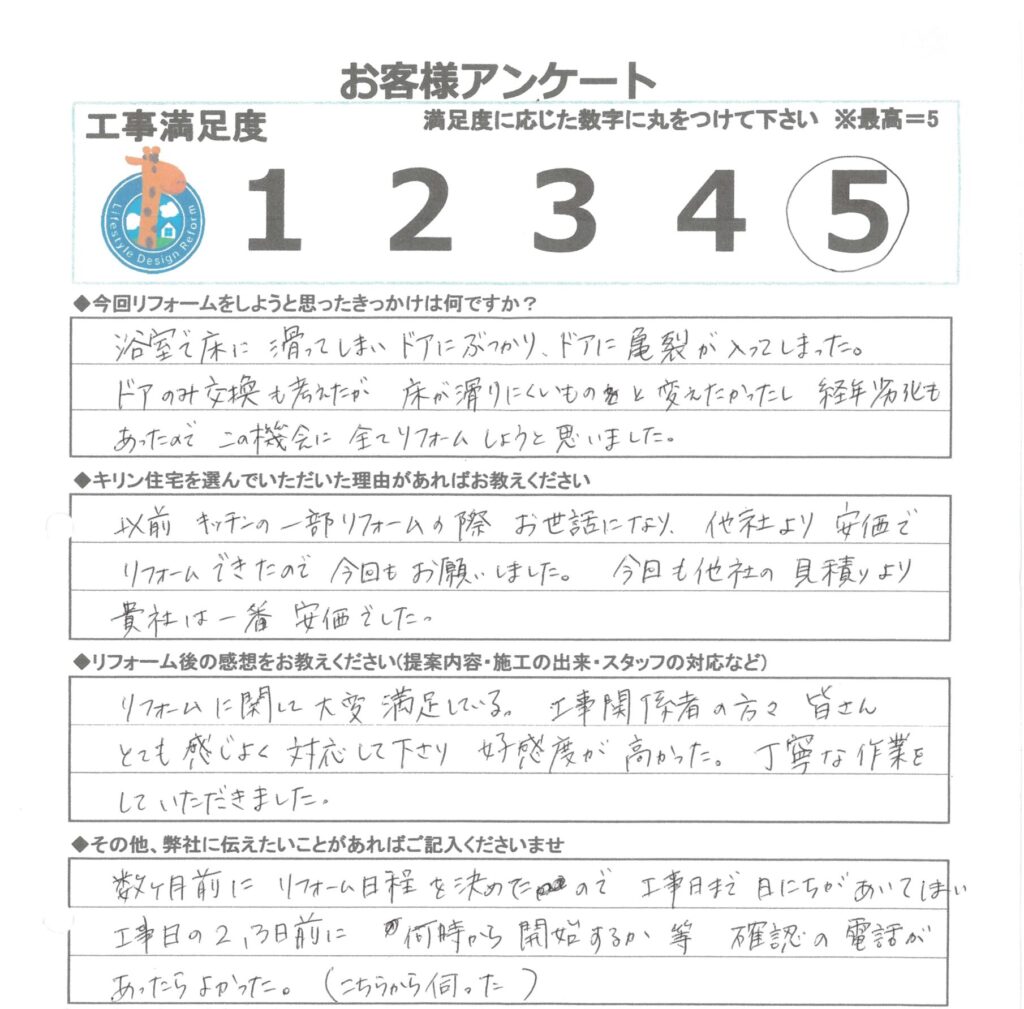 お客様アンケート
工事満足度 満足度に応じた数字に丸をつけて下さい ※最高=5
Lifestyle Design Reform
1 2 3 4 5
◆今回リフォームをしようと思ったきっかけは何ですか?
浴室で床に 滑ってしまい ドアにぶつかり、ドアに亀裂が入ってしまった。
ドアのみ交換も考えたが 床が滑りにくいものと変えたかったし 経年劣化も
あったので この機会に 全てリフォームしようと思いました。
◆キリン住宅を選んでいただいた理由があればお教えください
以前 キッチンの一部リフォームの際 お世話になり、他社より 安価で
リフォームできたので 今回もお願いしました。 今回も他社の見積りより
貴社は一番 安価でした。
◆リフォーム後の感想をお教えください(提案内容・施工の出来・スタッフの対応など)
リフォームに関して大変満足している。 工事関係者の方々 皆さん
とても感じよく対応して下さり 好感度が高かった。丁寧な作業を
していただきました。
◆その他、弊社に伝えたいことがあればご記入くださいませ
数ヶ月前に リフォーム日程を決めたので 工事日まで日にちがあいてしまい
工事日の2,3日前に 何時から開始するか等 確認の電話が
あったらよかった。(こちらから伺った)